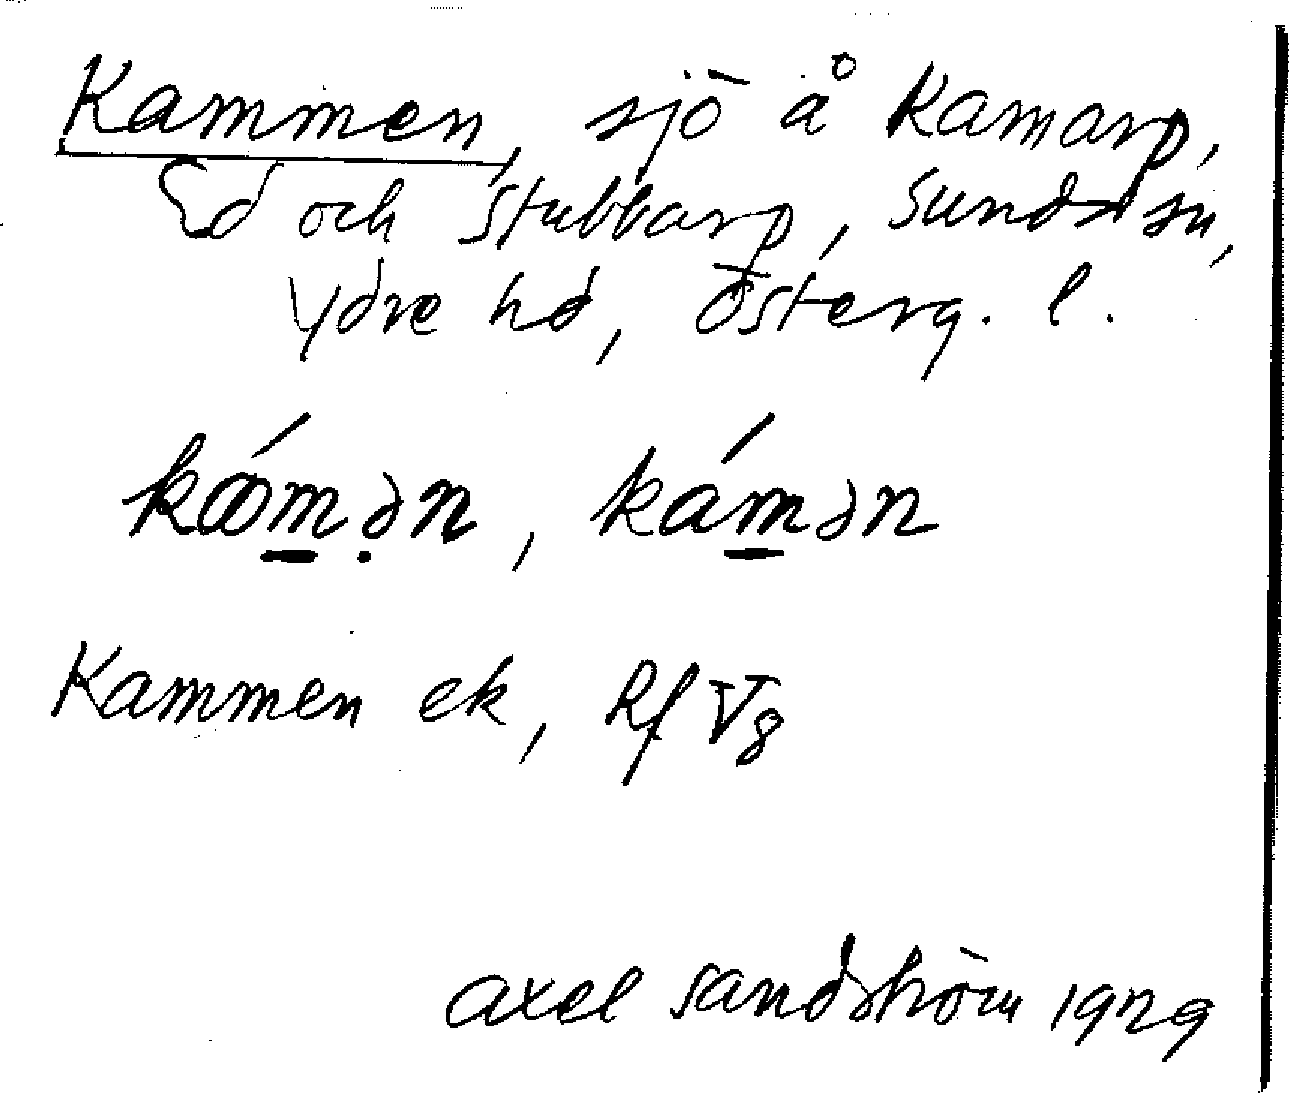 Kammen, sjö å Kamarp,
Ed och Stubbarp, Sunds sn,
Ydre hd, Österg. l.
kám̲ə̣n, kám̲ən
Kammen ek, Rf V8
Axel Sandström 1929